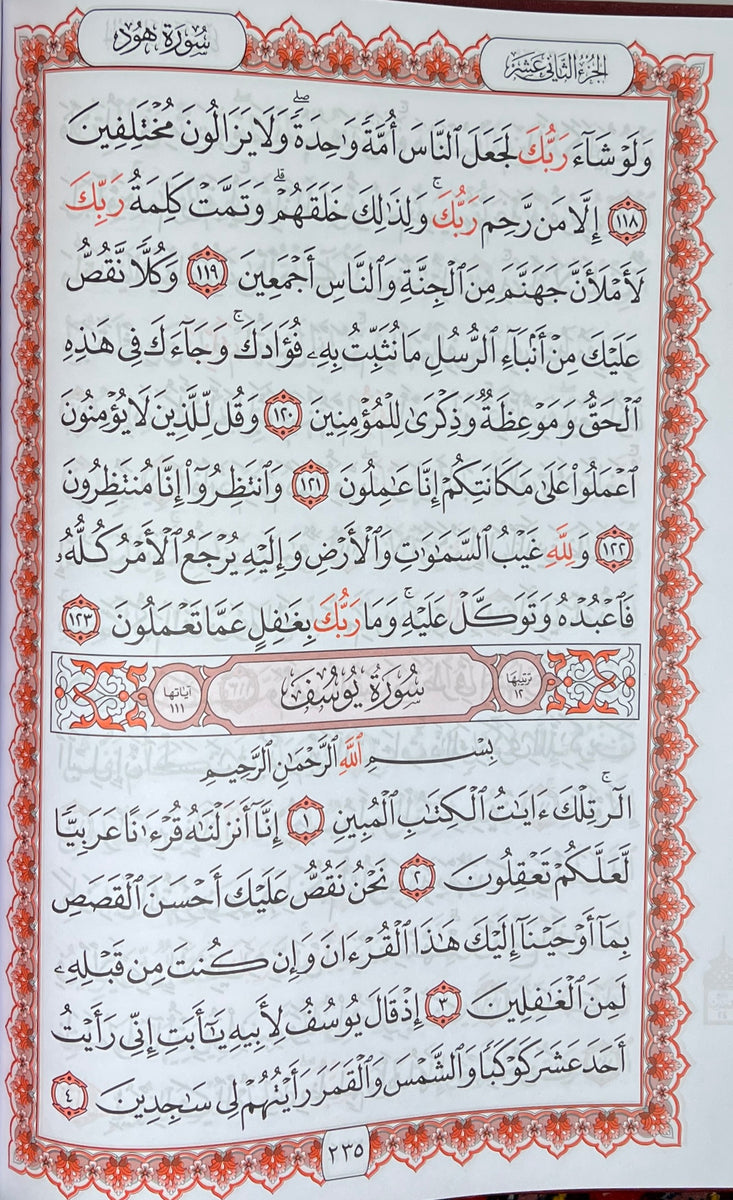 سُورَةُ هُود
الجُزْءُ الثَّانِي عَشَرَ
وَلَوْ شَآءَ رَبُّكَ لَجَعَلَ ٱلنَّاسَ أُمَّةً وَٰحِدَةً ۖ وَلَا يَزَالُونَ مُخْتَلِفِينَ
١١٨ إِلَّا مَن رَّحِمَ رَبُّكَ ۚ وَلِذَٰلِكَ خَلَقَهُمْ ۗ وَتَمَّتْ كَلِمَةُ رَبِّكَ
لَأَمْلَأَنَّ جَهَنَّمَ مِنَ ٱلْجِنَّةِ وَٱلنَّاسِ أَجْمَعِينَ ١١٩ وَكُلًّا نَّقُصُّ
عَلَيْكَ مِنْ أَنۢبَآءِ ٱلرُّسُلِ مَا نُثَبِّتُ بِهِۦ فُؤَادَكَ ۚ وَجَآءَكَ فِى هَٰذِهِ
ٱلْحَقُّ وَمَوْعِظَةٌ وَذِكْرَىٰ لِلْمُؤْمِنِينَ ١٢٠ وَقُل لِّلَّذِينَ لَا يُؤْمِنُونَ
ٱعْمَلُوا۟ عَلَىٰ مَكَانَتِكُمْ إِنَّا عَٰمِلُونَ ١٢١ وَٱنتَظِرُوٓا۟ إِنَّا مُنتَظِرُونَ
١٢٢ وَلِلَّهِ غَيْبُ ٱلسَّمَٰوَٰتِ وَٱلْأَرْضِ وَإِلَيْهِ يُرْجَعُ ٱلْأَمْرُ كُلُّهُۥ
فَٱعْبُدْهُ وَتَوَكَّلْ عَلَيْهِ ۚ وَمَا رَبُّكَ بِغَٰفِلٍ عَمَّا تَعْمَلُونَ ١٢٣
ترتيبها ١٢ سُورَةُ يُوسُفَ آياتها ١١١
بِسْمِ ٱللَّهِ ٱلرَّحْمَٰنِ ٱلرَّحِيمِ
الٓر ۚ تِلْكَ ءَايَٰتُ ٱلْكِتَٰبِ ٱلْمُبِينِ ١ إِنَّآ أَنزَلْنَٰهُ قُرْءَٰنًا عَرَبِيًّا
لَّعَلَّكُمْ تَعْقِلُونَ ٢ نَحْنُ نَقُصُّ عَلَيْكَ أَحْسَنَ ٱلْقَصَصِ
بِمَآ أَوْحَيْنَآ إِلَيْكَ هَٰذَا ٱلْقُرْءَانَ وَإِن كُنتَ مِن قَبْلِهِۦ
لَمِنَ ٱلْغَٰفِلِينَ ٣ إِذْ قَالَ يُوسُفُ لِأَبِيهِ يَٰٓأَبَتِ إِنِّى رَأَيْتُ
أَحَدَ عَشَرَ كَوْكَبًا وَٱلشَّمْسَ وَٱلْقَمَرَ رَأَيْتُهُمْ لِى سَٰجِدِينَ ٤
٢٣٥